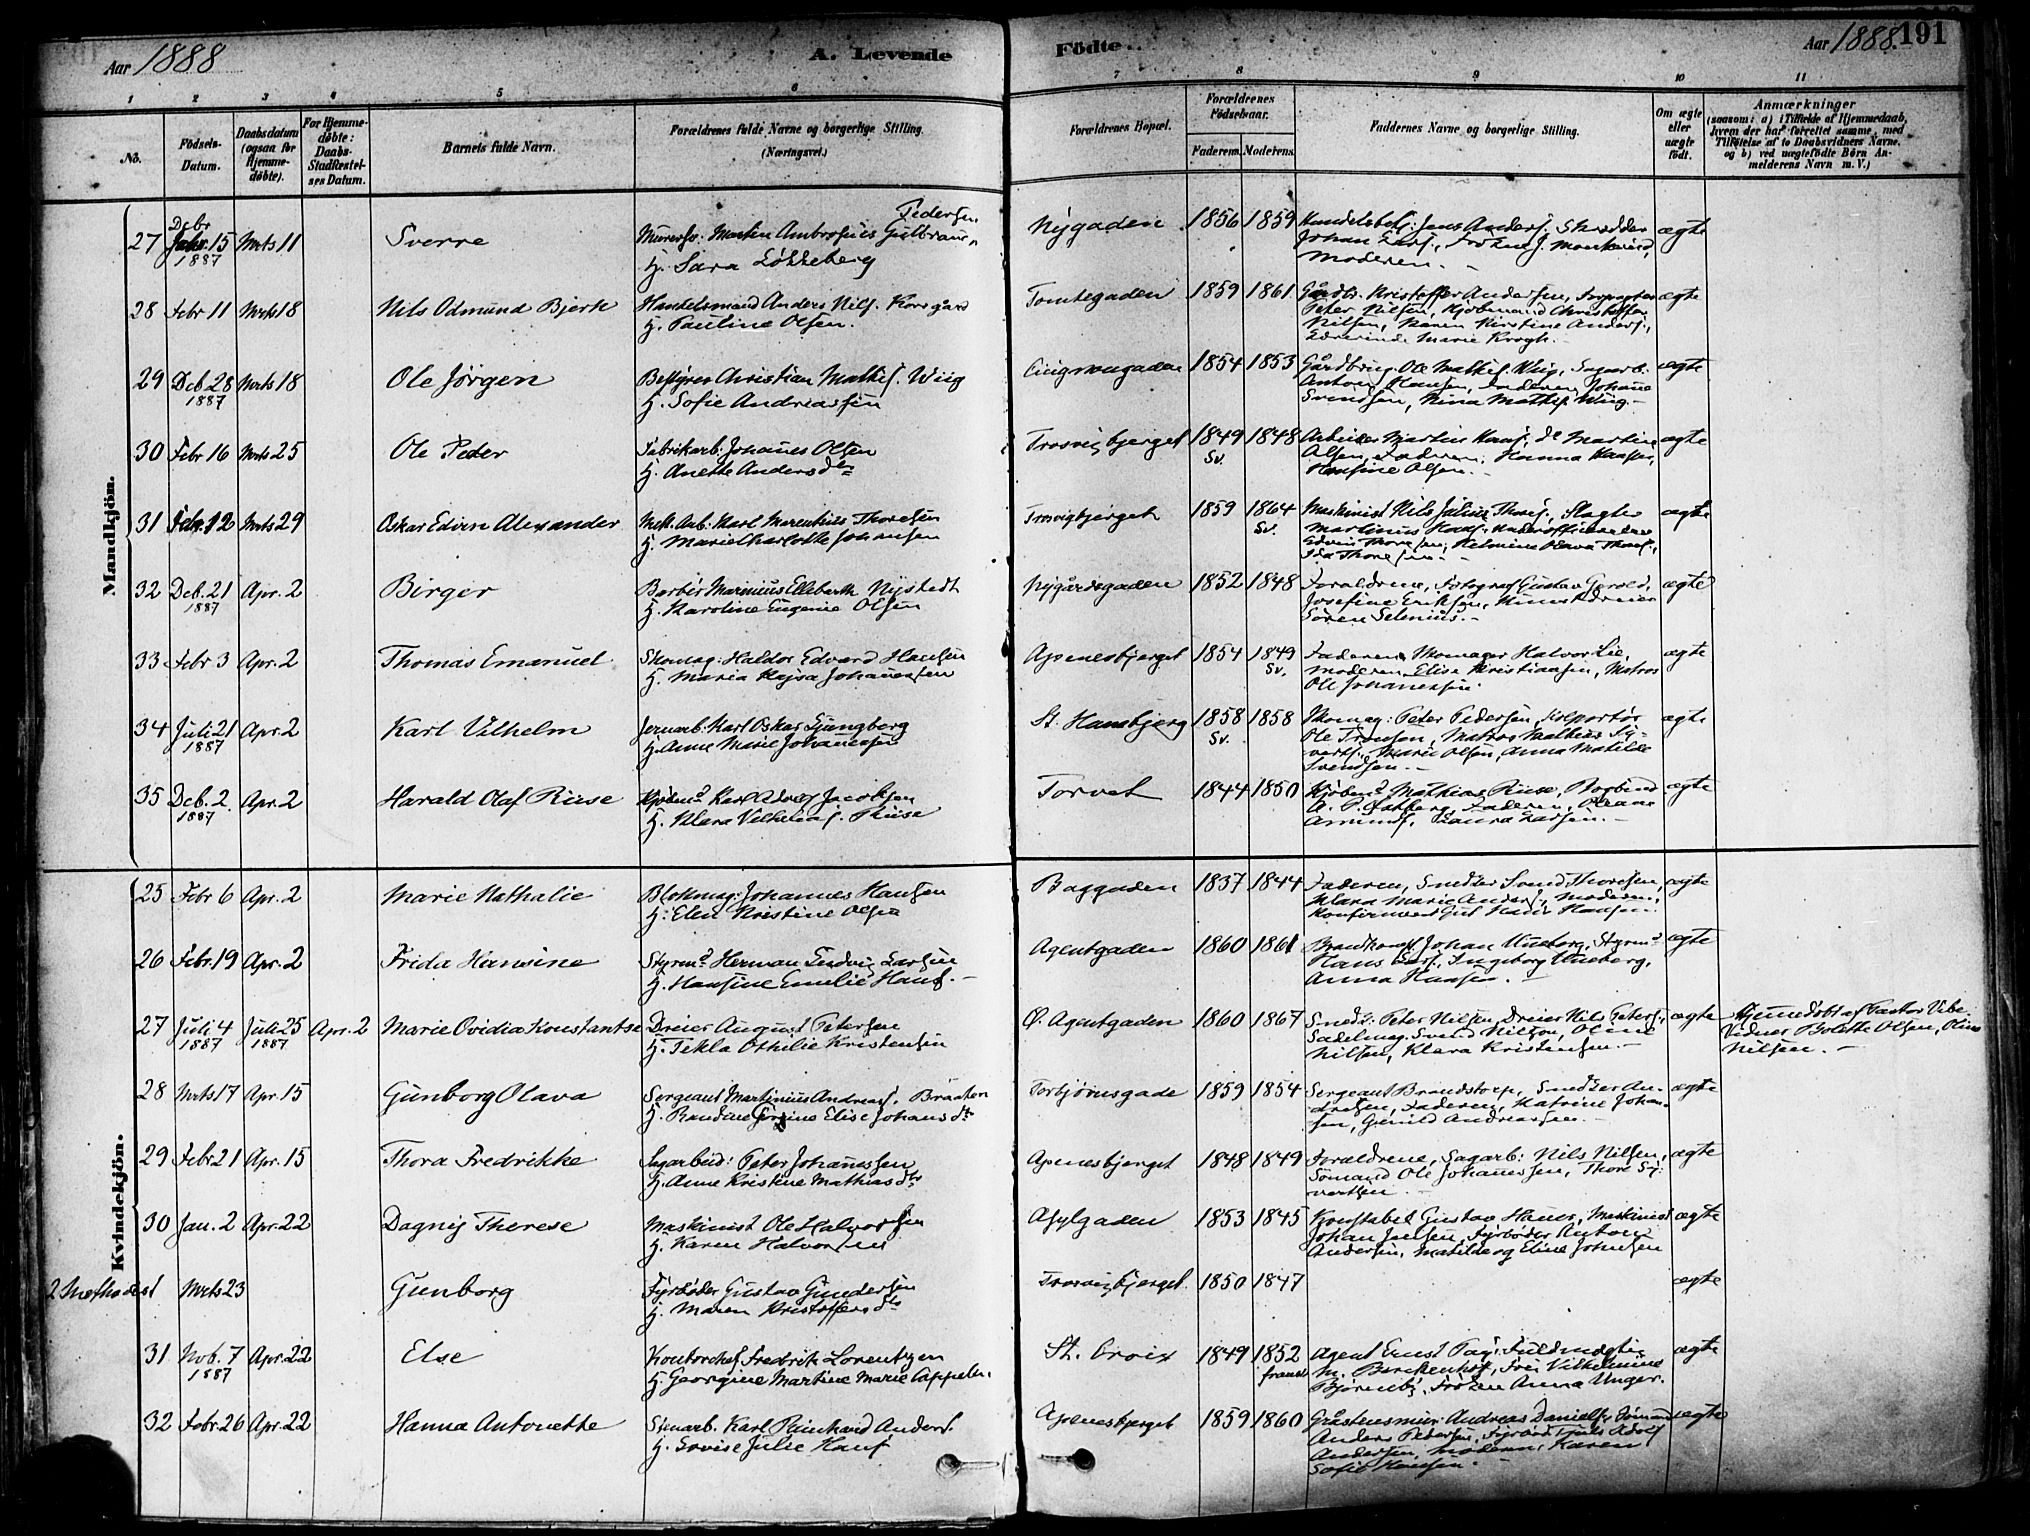 Aar 1888
A. Levende
Födte.
Aar 1888.
191
1 2 3 4 5 6 7 8 9 10 11
No.
Födsels-Datum.
Daabsdatum (ogsaa for Hjemme-döbte).
For Hjemme-döbte: Daabs-Stadfæstel-ses Datum.
Barnets fulde Navn.
Forældrenes fulde Navne og borgerlige Stilling.
(Næringsvei.)
Forældrenes Bopæl.
Forældrenes Födselsaar.
Faderens. Moderens.
Faddernes Navne og borgerlige Stilling.
Om ægte eller uægte födt.
Anmærkninger
(saasom: a) i Tilfælde af Hjemmedaab,
hvem der har forrettet samme, med
Tilföielse af to Daabsvidners Navne,
og b) ved uægtefödte Börn An-
melderens Navn m. V.)
Mandkjön.
27 Debr 15 1887 Mrts 11 Sverre
Murersv. Martin Ambrosius Gulbrans. Pedersen
H. Sara Lökkeberg
Nygaden 1856 1859
Handelsbet. Jens Anders. Skrædder
Johan
Moderen.
ægte
28 Febr 11 Mrts 18 Nils Odmund Bjerk
Handelsmand Anders Nils. Korsgård
H. Pauline Olsen.
Tomtegaden 1859 1861
Gårdbr. Kristoffer Andersen,
Peter Nilsen, Kjöbmand Christoffer
Nilsen, Maren Kirstine Anders.,
Lærerinde Marie Krogh.
ægte
29 Deb. 28 1887 Mrts 18 Ole Jörgen
Bestyrer Christian Mathis. Wiig
H. Sofie Andreassen
1854 1853
Gårdbrug. Ole Mathis. Wiig, Sagarb.
Anton Hansen, Faderen, Johanne
Svendsen, Nina Mathis. Wiig.
ægte
30 Febr 16 Mrts 25 Ole Peder
Fabrikarb. Johannes Olsen
H. Anette Andersdtr
Trosvigbjerget 1849 Sv. 1848
Arbeider Martin Hans. do Martin
Olsen, Faderen, Hanna Hansen,
Hansine Olsen.
ægte
31 Febr. 12 Mrts 29 Oskar Edvin Alexander
Mek. Arb. Karl Marentius Thoresen
H. Marie Charlotte Johansen
Trosvigbjerget 1859 1864 Sv.
Maskinist Nils Julius Thores., Slagter
Martinus Hans. Underofficer
Edvin Thoresen, Helmine Olava Thores.,
Ida Thoresen.
ægte
32 Deb. 21 1887 Apr. 2 Birger
Barber Marinius Elleberth Nystedt
H. Karoline Eugenie Olsen
Nygårdsgaden 1852 1848
Forældrene, Fotograf Gustav
Josefine Eriksen,
Sören Selenius.
ægte
33 Febr 3 Apr. 2 Thomas Emanuel
Skomag. Haldor Edvard Hansen
H. Maria Kajsa Johannessen
Apenesbjerget 1854 1849 Sv.
Faderen, Skomager Halvor Lie,
Moderen, Elise Kristiansen, Matros
Ole Johannessen
ægte
34 Juli 21 1887 Apr. 2 Karl Vilhelm
Jernarb. Karl Oskar Ljungberg
H. Anne Marie Johannessen
St. Hansbjerg 1858 Sv. 1858
Skomag. Peter Pedersen, Kolportör
Ole Tronsen, Matros Mathias Sy-
verts., Marie Olsen, Anna Matilde
Svendsen.
ægte
35 Deb. 2. 1887 Apr. 2 Harald Olaf Riise
Kjöbmd Karl Adolf Jacobsen
H. Klara Vilhelms. Riise
Torvet 1844 1850
Kjöbmd Mathias Riise, Bogbind.
A. P. Östberg, Faderen, Oleane
Amunds. Laura Larsen.
ægte
Kvindekjön.
25 Febr 6 Apr. 2 Marie Nathalie
Blokmag. Johannes Hansen
H. Elen Kristine Olsen
Baggaden 1837 1844
Faderen, Snedker Svend Thoresen,
Klara Marie Anders., Moderen,
Konfirmeret Hansen.
ægte
26 Febr. 19 Apr. 2 Frida Hansine
Styrmd Herman Ludvig Larsen
H. Hansine Emelie Hans.
Agentgaden 1860 1861
Johan Uneberg, Styrmd
Hans Lars., Ingeborg Uneberg,
Anna Hansen.
ægte
27 Juli 4 1887 Juli 25 1887 Apr. 2 Marie Ovidia Konstantse
Dreier August Petersen
H. Tekla Othilie Kristensen
Ö. Agentgaden 1860 1867
Snedk. Peter Nilsen, Dreier Nils Peters.,
Sadelmag. Svend Nilsen, Oline
Nilsen, Klara Kristensen.
ægte
Hjemmedöbt af Pastor Vibe.
Vidner Bolette Olsen, Oline
Nilsen.
28 Mrts 17 Apr. 15 Gunborg Olava
Sergeant Martinius Andreas. Bråten
H. Randine Elise Johansdtr
Torbjörnsgade 1859 1854
Sergeant Brandstorp, Snedker An-
dresen, Faderen, Katrine Johan-
sen, Gunild Andreassen.
ægte
29 Febr 21 Apr. 15 Thora Fredrikke
Sagarbeid. Peter Johannessen
H. Anne Kristine Mathiasdtr
Apenesbjerget 1848 1849
Forældrene, Sagarb. Nils Nilsen,
Sömand Ole Johannessen, Thora Sy-
vertsen.
ægte
30 Jan. 2 Apr. 22 Dagny Therese
Maskinist Ole Halvorsen
H. Karen Halvorsen
Asylgaden 1853 1845
Konstabel Gustav Hauer, Maskinist
Johan Juelsen, Fyrböder Anton
Andersen, Matilde og Eline Johnsen
ægte
2 Methodist Mrts 23 Gunborg
Fyrböder Gustav Gundersen
H. Maren Kristoffersdtr
Trosvigbjerget 1850 1847
ægte
31 Nov. 7 1887 Apr. 22 Else
Kontorchef Fredrik Lorentzen
H. Georgine Martine Marie Cappelen.
St. Croix 1849 1852
Agent Ernst Fuldmægtig
Birckenhof, Frk. Vilhelmine
Björneby, Fröken Anna Unger.
ægte
32 Febr. 26 Apr. 22 Hanna Antonette
Stenarb. Karl Reinhard Anders.
H. Lovise Julie Hans.
Apenesbjerget 1859 1860
Gråstensmin. Andreas Daniels., Sömand
Anders Pedersen, Fyrböd. Adolf
Andersen, Moderen, Karen
Sofie Hansen.
ægte